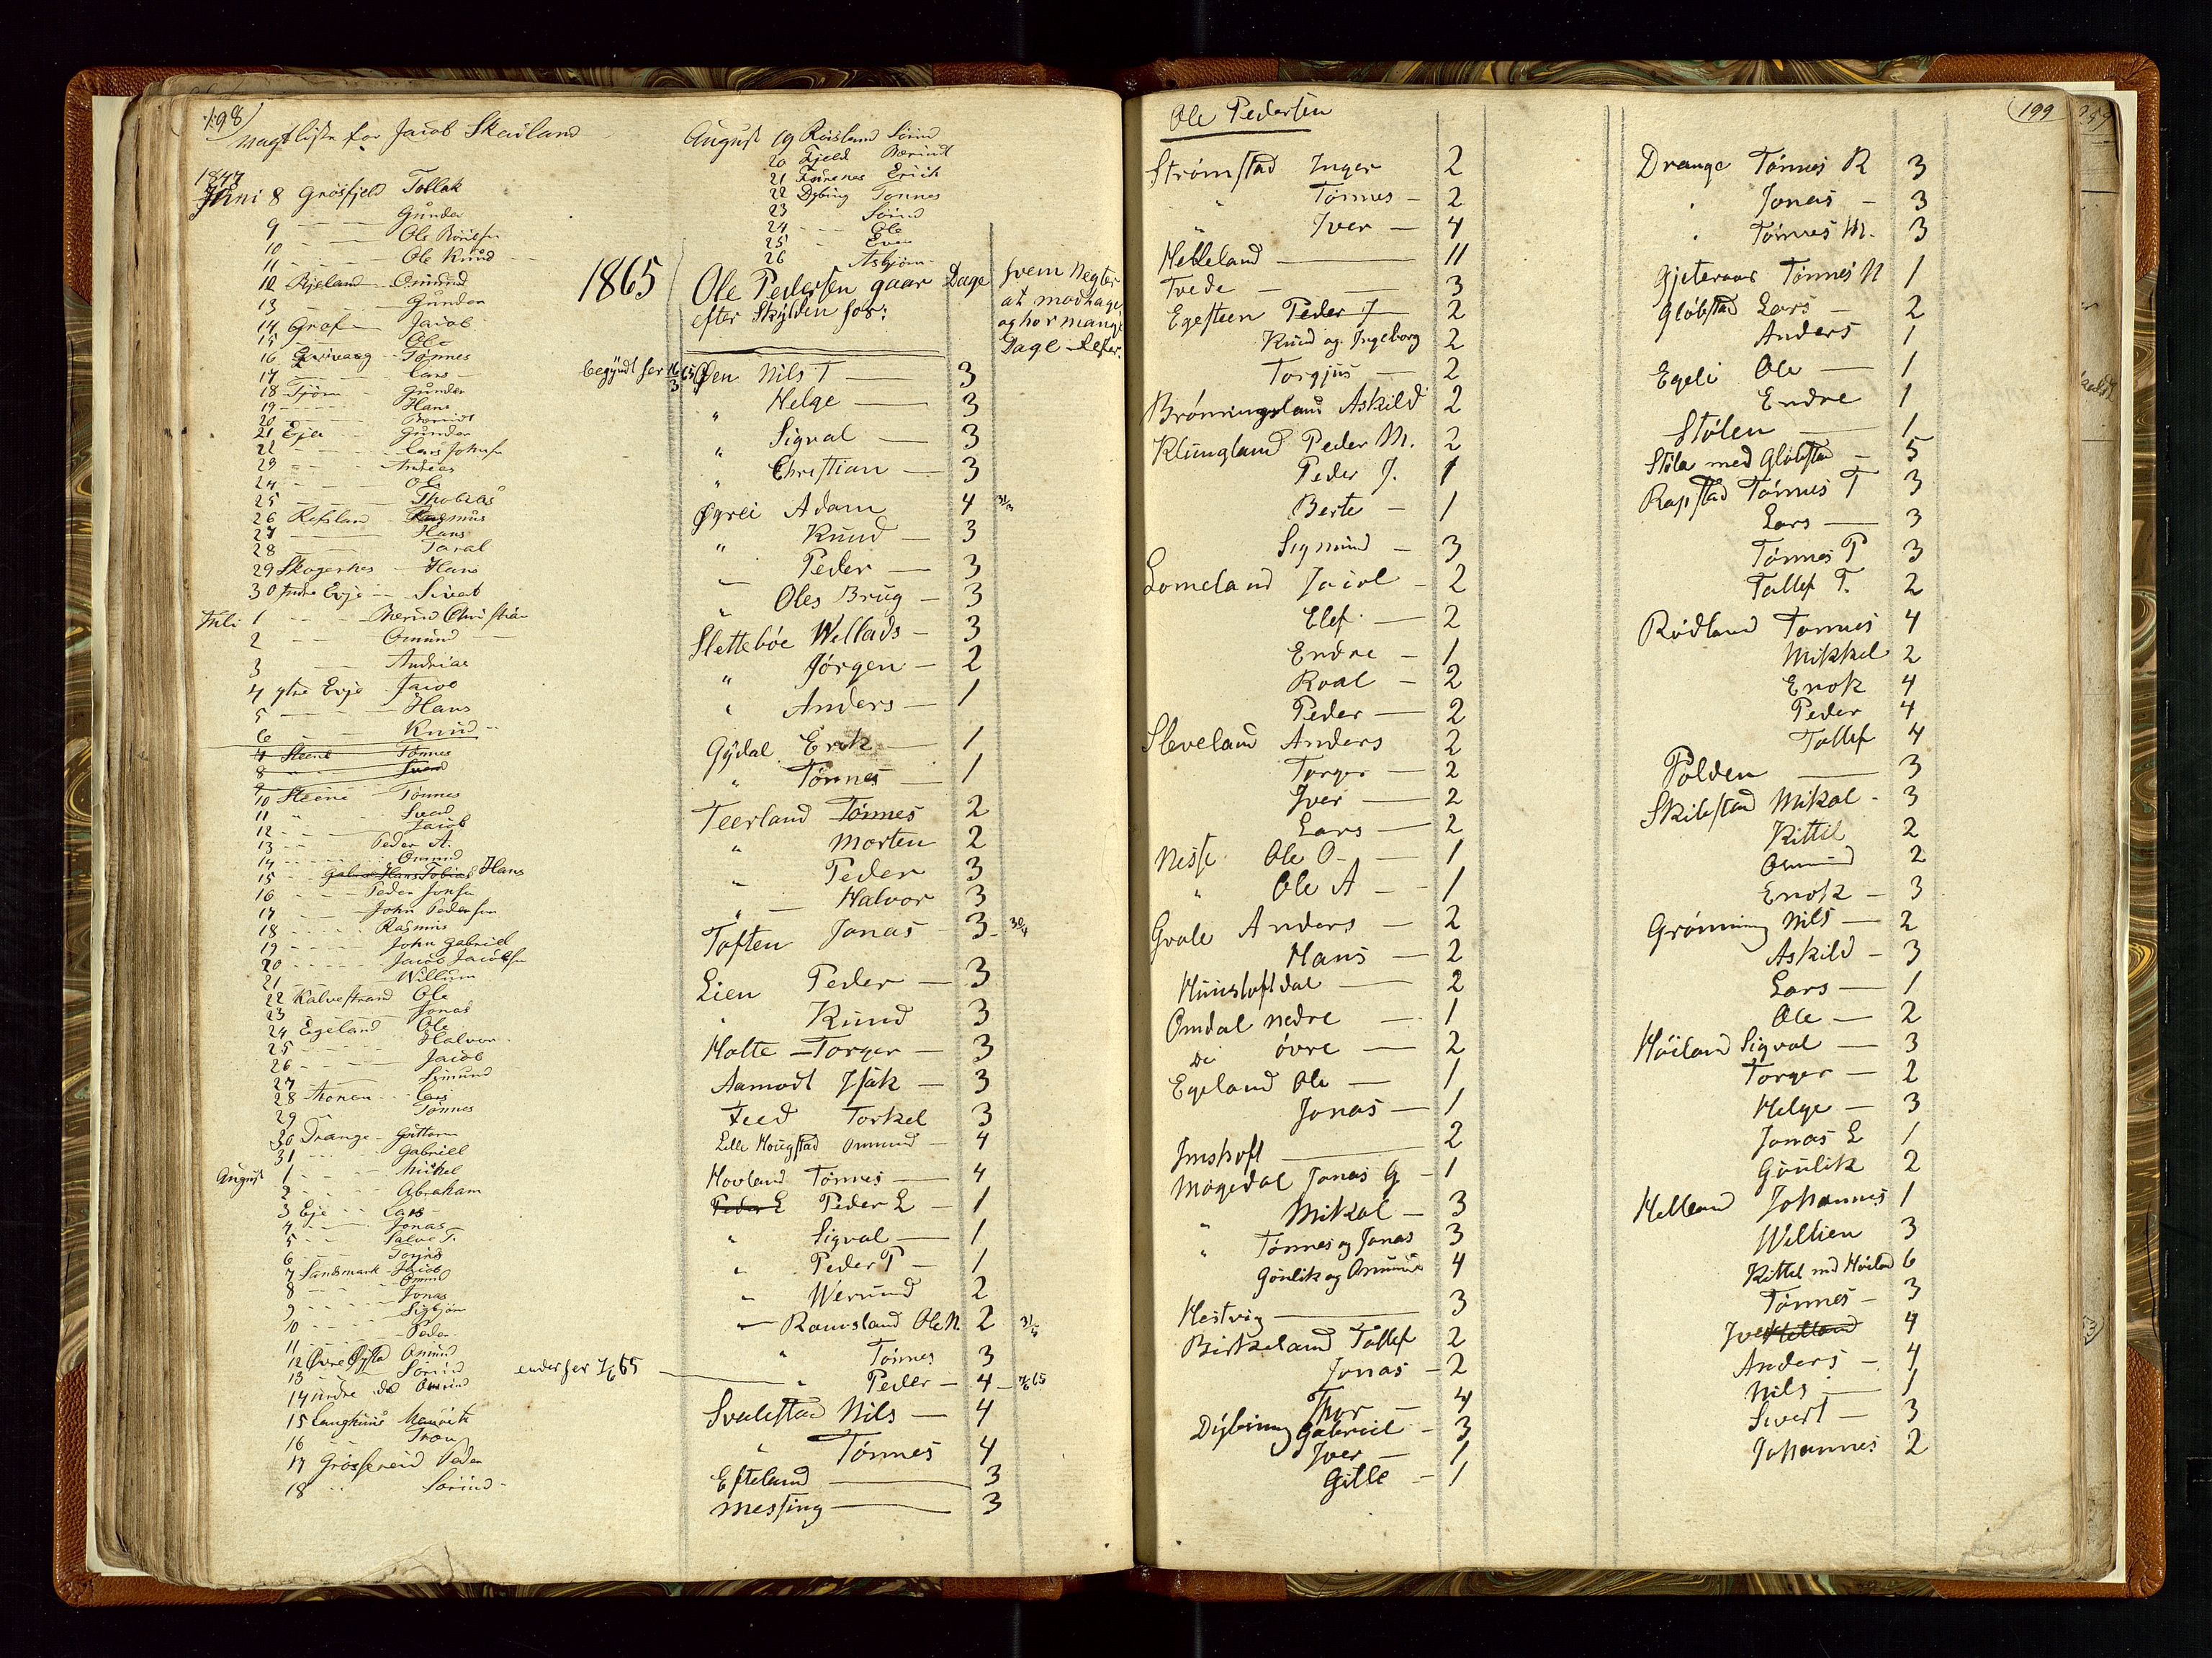 198)
Vagtliste for Jacob Skailand
1847
Juni 8 Grøsfjeld Tollak
9 Gunder
10 Ole
11 Ole Knud
12 Rjeland Omund
13 Gunder
14 Graf Jacob
15 Ole
16 Tønnes
17 Lars
18 Tjørn Gunder
19 Hans
20 Berndt
21 Eje Gunder
22 Lars Johns
23 Andreas
24 Ole
25 Thobias
26 Refsland Rasmus
27 Hans
28 Taral
29 Skogestad Hans
30 Indre Evje Sivert
Juli 1 Berend Christian
2 Omund
3 Andreas
4 ytre Evje Jacob
5 Hans
6 Knud
7 Steene Tønnes
8 Svend
9
10 Steene Tønnes
11 Svend
12 Jacob
13 Peder A.
14 Omund
15 Gabriel Hans Tobias Hans
16 Peder Jonsen
17 John Pedersen
18 Rasmus
19 John Gabriel
20 Jacob Jacobsen
21 Willum
22 Kalvestrand Ole
23 Jonas
24 Egeland Ole
25 Halvor
26 Jacob
27 Sømund
28 Aronen Lars
29 Tønnes
30 Drange Guttorm
31 Gabriel
August 1 Mikkel
2 Abraham
3 Eje Lars
4 Jonas
5 Salve T.
6 Tønnes
7 Sandsmark Jacob
8 Omund
9 Jonas
10 Sigbjørn
11 Peder
12 Øvre Omund
13 Sørind
14 nedre do Omund
15 Langhuus Mauritz
16 Tron
17 Grøssereid Peder
18 Sørind
August 19 Røisland Sørend
20 Fjeld Berent
21 Fuurenes Erich
22 Dybing Tønnes
23 Sørend
24 Ole
25 Even
26 Asbjørn
1865
Ole Pedersen gaar Dage hvem Negter
efter Skylden for: at modtage
og hor mange
Dage Lefter
begyndt her 16/3 65
Øen Nils T 3
" Helge 3
" Sigval 3
" Christian 3
Øgrei Adam 4 31/3
" Knud 3
Peder 3
" Oles Brug 3
Slettebøe Wellads 3
" Jørgen 2
" Anders 1
Gydal Erik 1
" Tønnes 1
Teerland Tønnes 2
" Morten 2
" Peder 3
" Halvor 3
Toften Jonas 3 30/4
Lien Peder 3
" Knud 3
Holte Torger 3
Aamodt Isak 3
Feed Torkel 3
Lille Hougstad Omund 4
Hovland Tønnes 4
Peder L Peder L 1
" Sigval 1
" Peder P 1
" Werund 2
Ramsland Ole N. 2 31/5
" Tønnes 3
ender her 7/6 65 " Peder 4 7/6 65
Svalestad Nils 4
" Tønnes 4
Efteland 3
Messing 3
Ole Pedersen
Strømstad Inger 2
" Tønnes 2
" Iver 4
Helleland 11
Tvede 3
Egesteen Peder J 2
Knud og Ingeborg 2
Torgjus 2
Brønningsland Askild 2
Klungland Peder M. 2
Peder J. 1
Berte 1
Sigmund 3
Lomeland Jacob 2
Elef 2
Endre 1
Roal 2
Peder 2
Sleveland Anders 2
Torger 2
Iver 2
Lars 2
Nesse Ole O. 1
" Ole A 1
Gvale Anders 2
Hans 2
Huusloftdal 2
Omdal nedre 1
do øvre 2
Egeland Ole 1
Jonas 1
Imshoft 2
Mogedal Jonas G 1
" Mikal 3
" Tønnes og Jonas 3
Gunlik og Omund 4
Hestvig 3
Birkeland Tollef 2
Jonas 2
Thor 4
Dybing Gabriel 3
Iver 1
Gitle 1
199
Drange Tønnes R 3
" Jonas 3
" Tønnes M. 3
Gjeteraas Tønnes N 1
Gløbstad Lars 2
Anders 1
Egeli Ole 1
Endre 1
Stølen 1
Støle med Gløbstad 5
Rapstad Tønnes T 3
Lars 3
Tønnes P 3
Tollef T. 2
Rødland Tønnes 4
Mikkel 2
Enok 4
Peder 4
Tollef 4
Polden 3
Skibestad Mikal 3
Kittil 2
Omund 2
Enok 3
Grønning Nils 2
Askild 3
Lars 1
Ole 2
Høiland Sigval 3
Torger 2
Helge 3
Jonas L 1
Gunlik 2
Helland Johannes 1
Willien 3
Kittel med Høiland 6
Tønnes 3
Iver Helland 4
Anders 4
Nils 1
Sivert 3
Johannes 2